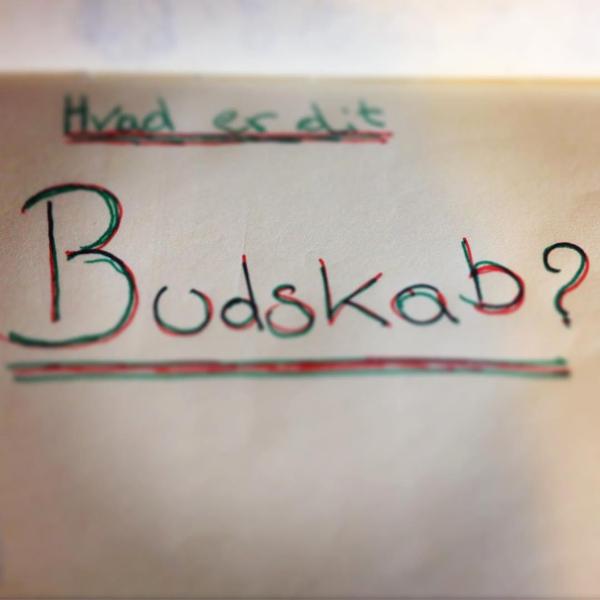 Hvad er dit
Budskab?